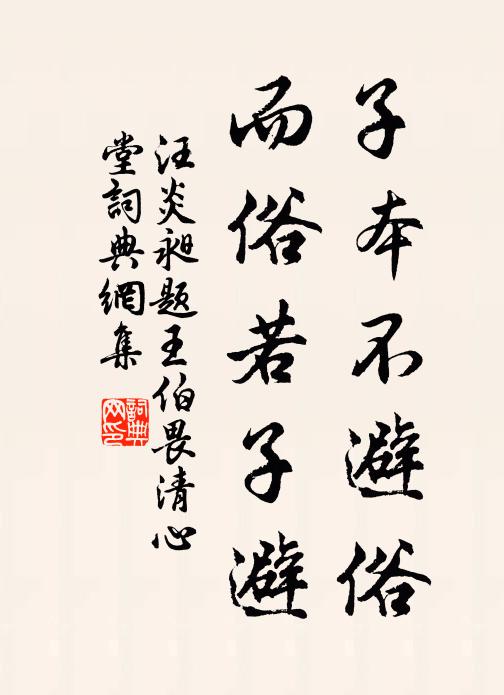 子本不避俗
而俗若子避
汪炎昶题王伯畏清心
堂詞典網集
詞典网印